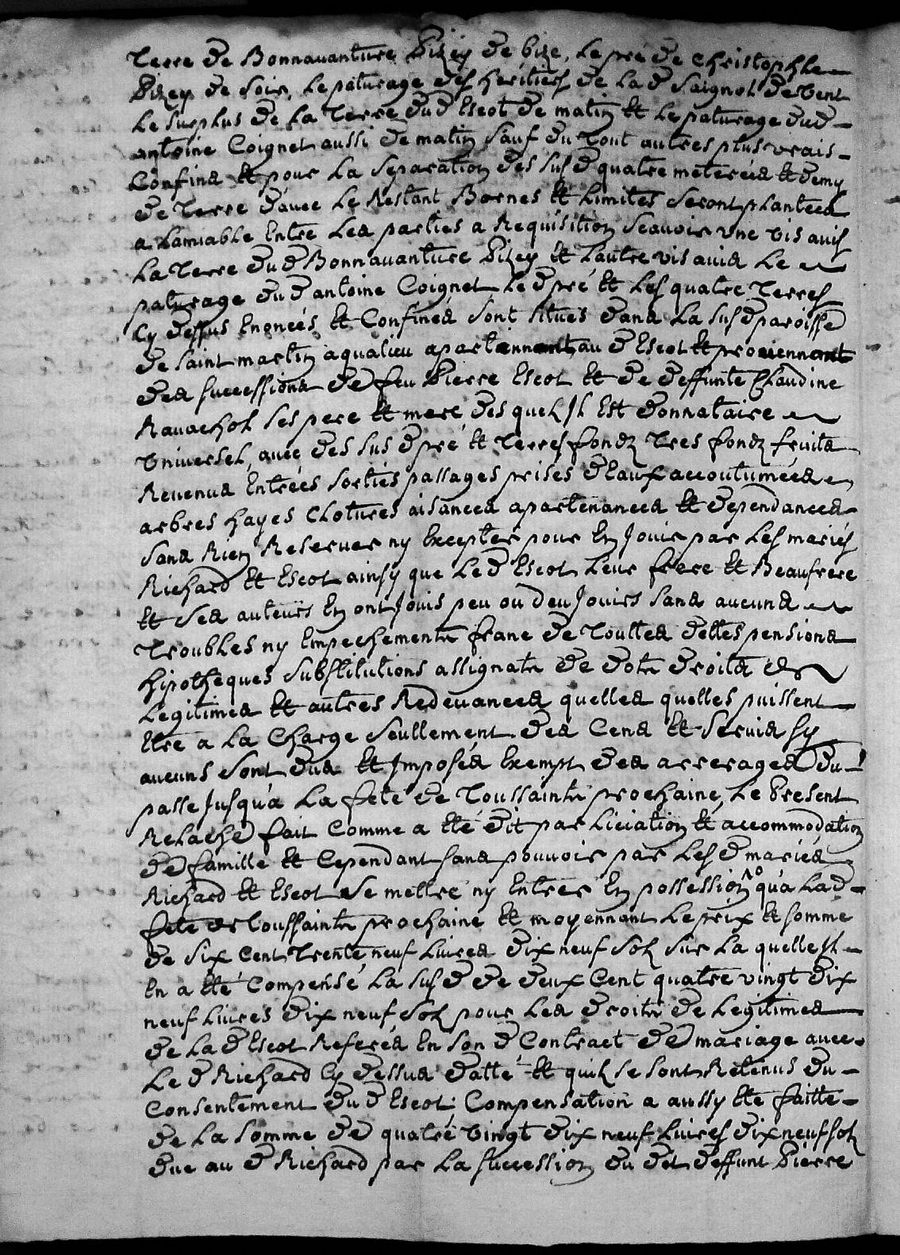 Terre de Bonnavanture Pizey de bize, Le pré de Christophle
Pizey de soir, Le paturage des héritiers de La d Saignol de vent
Le surplus de La Terre dud Escot de matin Et Le paturage dud
antoine Coignet aussi de matin sauf du tout autres plus vrais
Confins Et pour La separation des susd quatre meterées Et demy
de Terre d'avec Le Restant Bornes Et Limites seront plantées
a Lamiable Entre Les parties a Requisition Scavoir vne vis avis
La Terre dud Bonnavanture Pizey Et Lautre vis avis Le
paturage dud antoine Coignet Le d pré Et Les quatre Terres
Cy dessus Enoncés Et Confinés sont situés dans La susd paroisse
de Saint martin aqualieu apartennant au d Escot Et provennant
des successions de feu Pierre Escot Et de deffunte Claudine
Ravachol ses pere Et mere desquels Il Est donnataire
Vniversel, avec des sus d pré Et Terres fondz Tres fondz fruits
Revenus Entrées sorties passages prises d'Eaux accoutumées
arbres hayes Clotures aisances apartenances Et dependances
sans Rien Reserver ny Excepter pour En Jouir par Les mariés
Richard Et Escot ainsy que Le d Escot Leur frere Et Beaufrere
Et ses auteurs En ont Jouis peu ou deu Jouirs sans aucuns
Troubles ny Empechements franc de Touttes dettes pensions
hipotheques substitutions assignats de dots droits de
Legitimes Et autres Redevances quelles quelles puissent
Etre a La Charge seullement des Cens Et servis sy
aucuns sont dus Et Imposés Exempt des arrerages du
passe Jusqu'a La fete de Toussaints prochaine, Le Present
Relaché fait Comme a Eté dit par Licitation Et accommodation
de famille Et Cependant sans pouvoir par Les d mariés
Richard Et Escot se mettre ny Entrer En possession qu'a Lad
fete de Toussaints prochaine Et moyennant Le prix Et somme
de six Cent Trente neuf Livres dix neuf sols sur La quelle Il
En a Eté Compensé La susd de deux Cent quatre vingt dix
neuf Livres dix neuf sols pour Les droits de Legitimes
de La d Escot Referés En son d Contract de mariage avec
Le d Richard Cy dessus datté Et quils se sont Retenus du
Consentement dud Escot. Compensation a aussy Eté faitte
de La somme de quatre vingt dix neuf Livres dix neuf sols
due au d Richard par La succession du dit deffunt Pierre